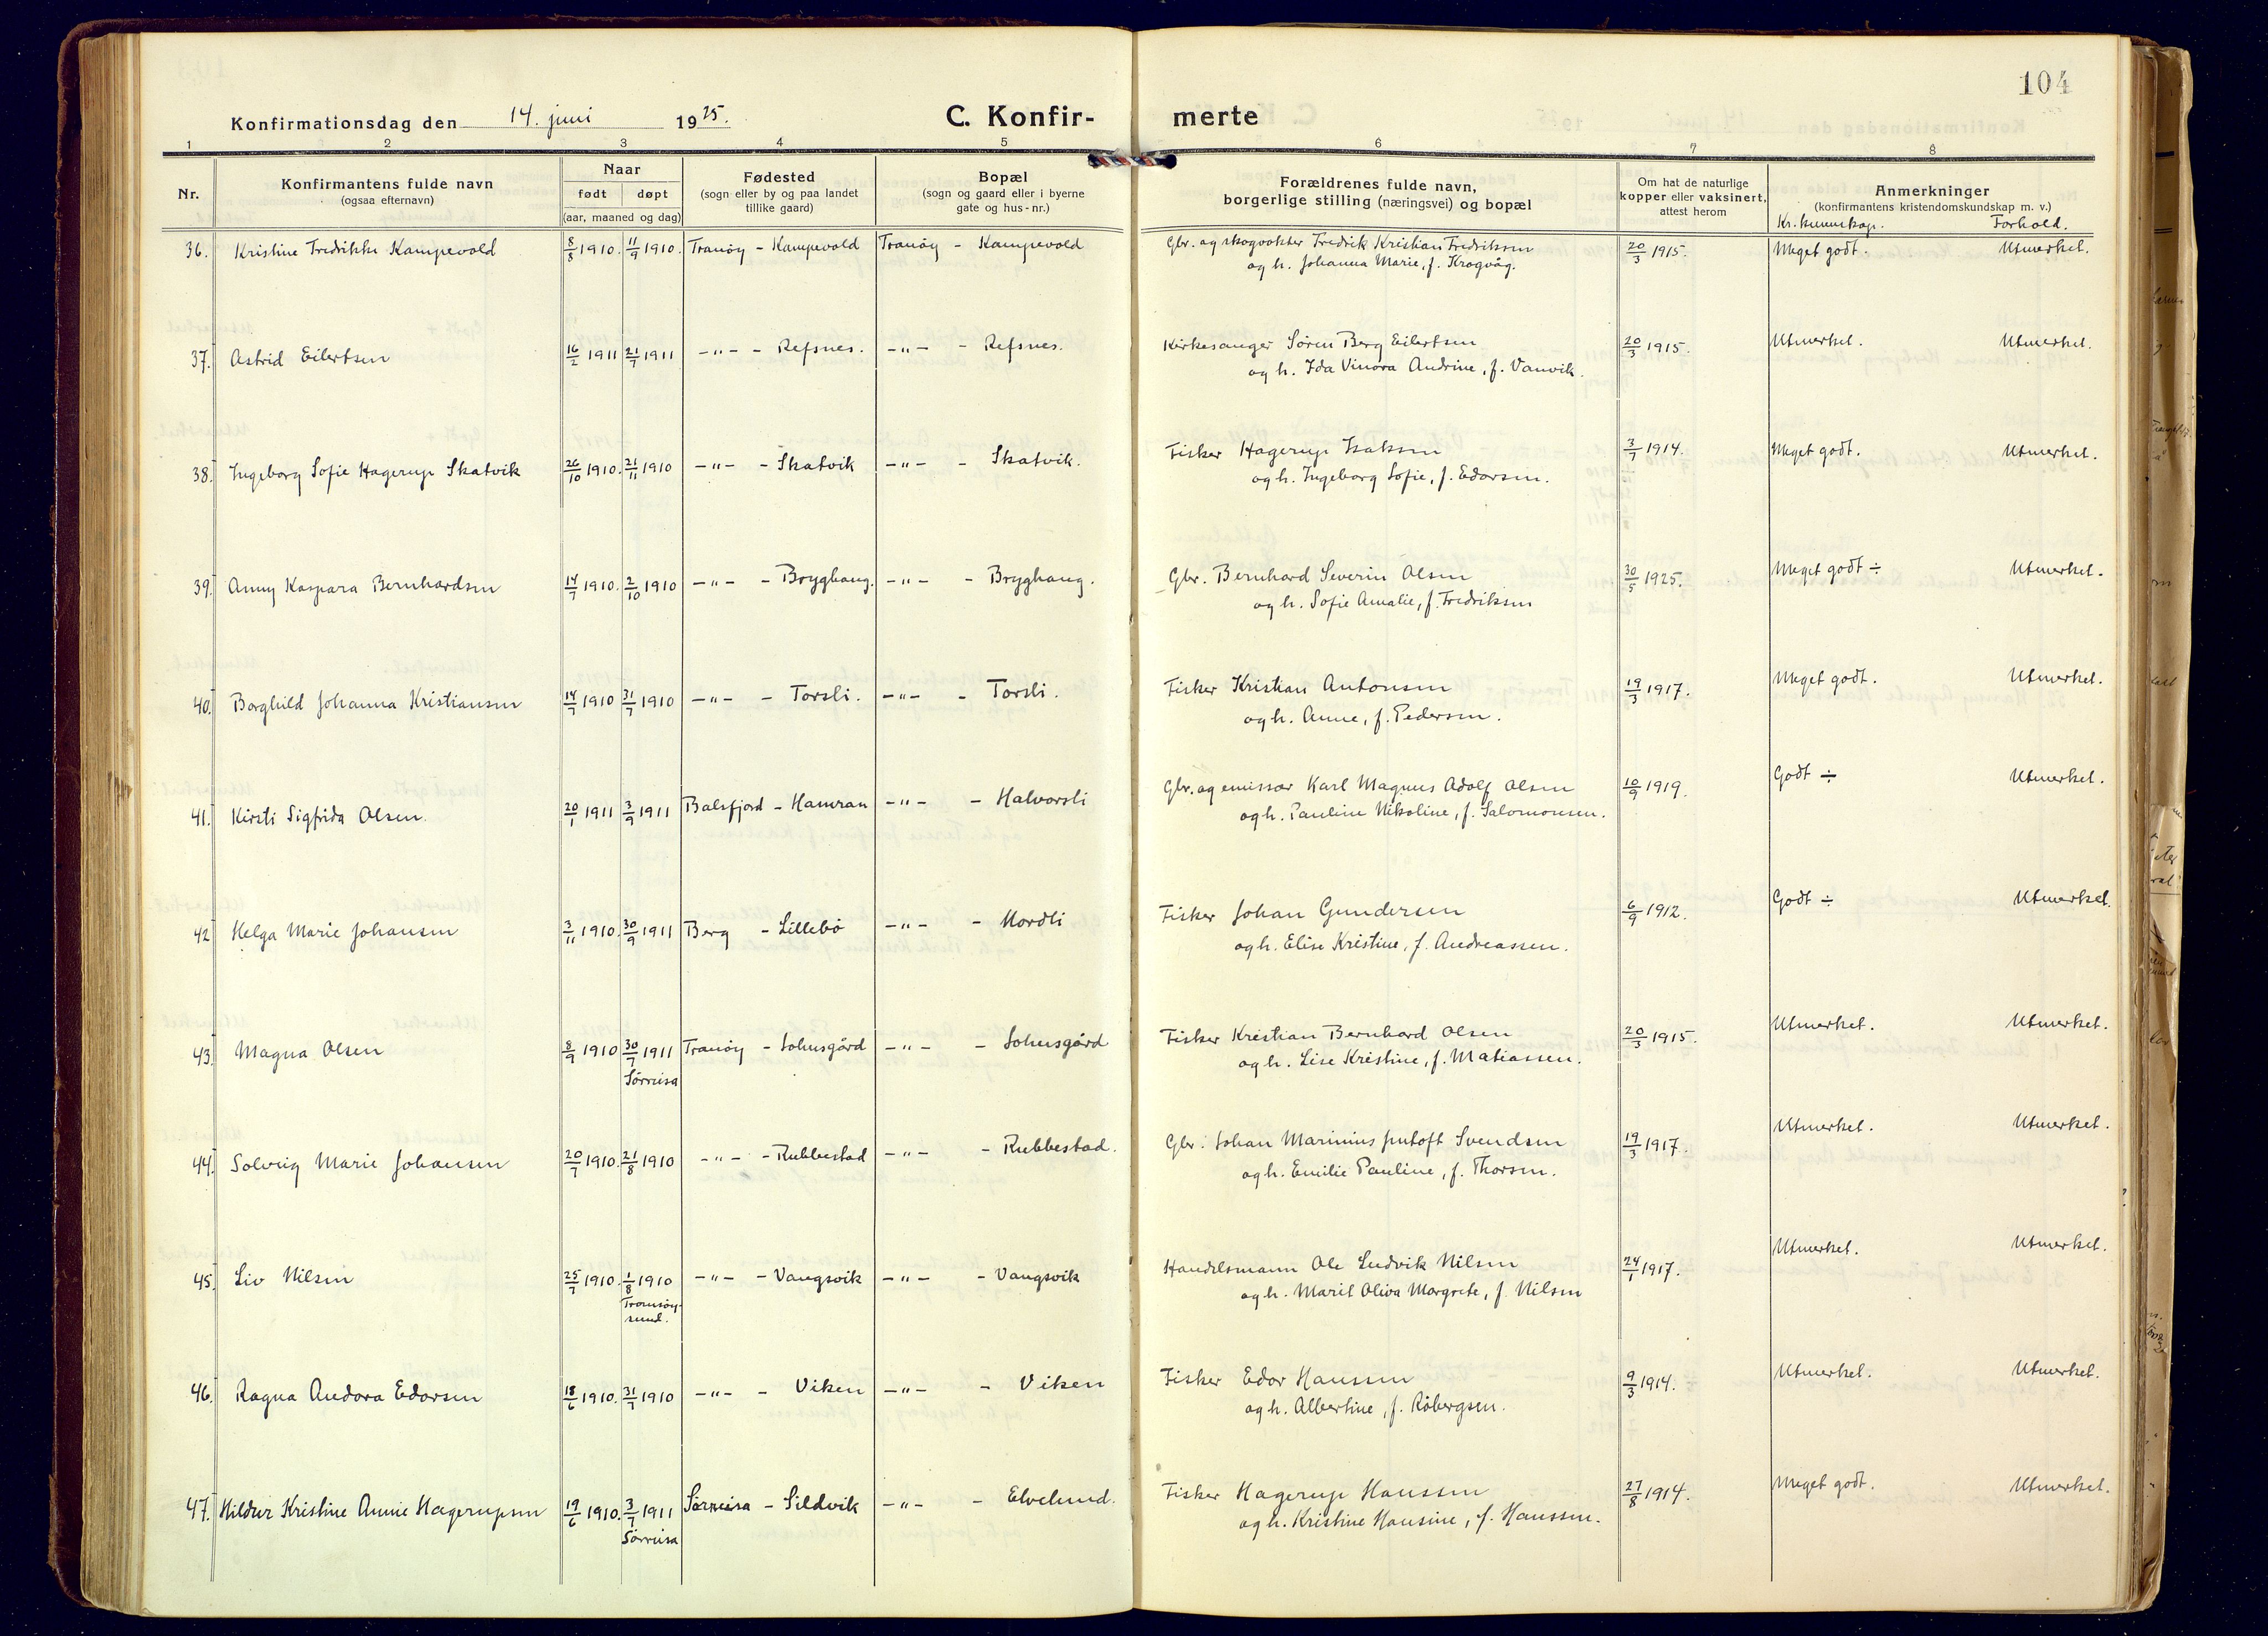 104
Konfirmationsdag den 14. juni 1925.
C. Konfirmerte
1 2 3 4 5 6 7 8
Nr.
Konfirmantens fulde navn
(ogsaa efternavn)
Naar
født døpt
(aar, maaned og dag)
Fødested
(sogn eller by og paa landet
tillike gaard)
Bopæl
(sogn og gaard eller i byerne
gate og hus-nr.)
Forældrenes fulde navn,
borgerlige stilling (næringsvei) og bopæl
Om hat de naturlige
kopper eller vaksinert,
attest herom
Anmerkninger
(konfirmantens kristendomskundskap m. v.)
Kr. kunnskap. Forhold.
36. Kristine Fredrikke Kampevold 8/8 1910. 11/9 1910. Tranöy - Kampevold Tranöy - Kampevold Gbr. og skogvokter Fredrik Kristian Fredriksen 20/3 1915. Meget godt. Utmerket.
og h. Johanna Marie, f. Krogvåg.
37. Astrid Eilertsen 16/2 1911 21/7 1911 -"- - Refsnes. -"- - Refsnes. Kirkesanger Sören Berg Eilertsen 20/3 1915. Utmerket. Utmerket.
og h. Ida Vinora Andrine, f. Vanvik.
38. Ingeborg Sofie Hagerup Skatvik 26/10 1910. 21/11 1910 -"- - Skatvik -"- - Skatvik. Fisker Hagerup Isaksen 3/7 1914. Meget godt. Utmerket.
og h. Ingeborg Sofie, f. Edorsen.
39. Anny Kaspara Bernhardsen 14/7 1910. 2/10 1910 -"- - Brygghaug. -"- - Brygghaug. Gbr. Bernhard Severin Olsen 30/5 1925. Meget godt ÷ Utmerket.
og h. Sofie Amalie, f. Fredriksen
40. Borghild Johanna Kristiansen 14/7 1910 31/7 1910 -"- - Torsli. -"- - Torsli. Fisker Kristian Antonsen 19/3 1917. Meget godt. Utmerket.
og h. Anne, f. Pedersen.
41. Kirsti Sigfrida Olsen. 20/1 1911 3/9 1911 Balsfjord - Hamran -"- - Halvorsli Gbr. og emissær Karl Magnus Adolf Olsen 10/9 1919. Godt ÷ Utmerket.
og h. Pauline Nikoline, f. Salomonsen.
42 Helga Marie Johansen 3/11 1910. 30/9 1911 Berg - Lillebö -"- - Nordli Fisker Johan Gundersen 6/9 1912. Godt ÷ Utmerket.
og h. Elise Kristine, f. Andreassen.
43. Magna Olsen 8/9 1910 30/7 1911 Tranöy - Johnsgård -"- - Johnsgård Fisker Kristian Bernhard Olsen 20/3 1915. Utmerket. Utmerket.
Sörreisa og h. Lise Kristine, f. Matiassen.
44. Solveig Marie Johansen 20/7 1910. 21/8 1910 -"- - Rubbestad -"- - Rubbestad. Gbr. Johan Marinius Jentoft Svendsen 19/3 1917. Utmerket. Utmerket.
og h. Emilie Pauline, f. Thorsen.
45. Liv Nilsen 25/7 1910. 1/8 1910 -"- - Vangsvik -"- - Vangsvik Handelsmann Ole Ludvik Nilsen 24/1 1917. Utmerket. Utmerket.
Tromsöysund. og h. Maril Oliva Margrete, f. Nilsen
46. Ragna Andora Edorsen 18/6 1910. 31/7 1910 -"- - Viken -"- - Viken Fisker Edor Hanssen 9/3 1914. Utmerket. Utmerket.
og h. Albertine, f. Röbergsen.
47. Hildur Kristine Annie Hagerupsen 19/6 1910. 3/7 1911 Sörreisa - Sildvik -"- - Elvelund. Fisker Hagerup Hanssen 27/8 1914. Meget godt. Utmerket.
Sörreisa og h. Kristine Hansine, f. Hanssen.